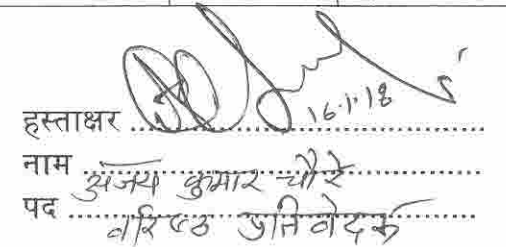 हस्ताक्षर
16.1.18
नाम अजय कुमार चौरे
पद वरिष्ठ प्रतिवेदक